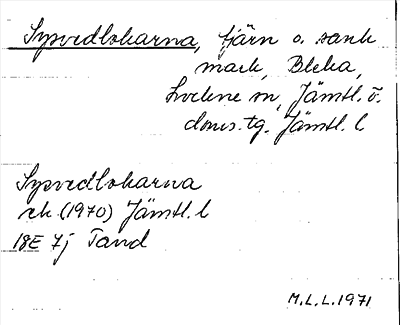 Sysvedlokarna, tjärn o. sank
mark, Bleka,
Lockne sn, Jämtl. ö.
doms.tg. Jämtl. l
Sysvedlokarna
ek (1970) Jämtl. l
18E 7j Tand
M.L.L. 1971